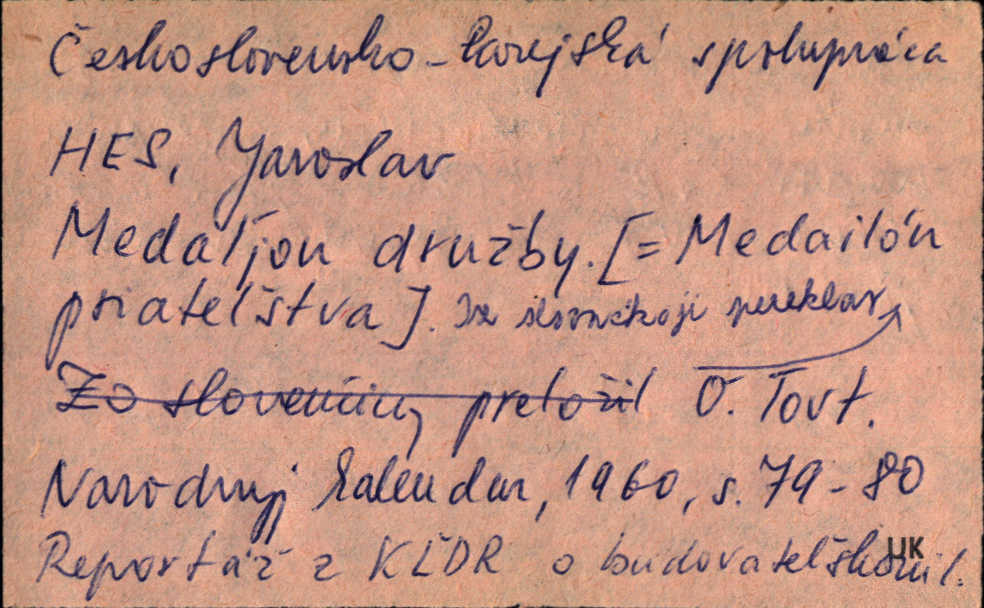 Československo-kórejská spolupráca
HES, Jaroslav
Medaljon družby. [= Medailón
priateľstva]. Iz slovackoji pereklav
Zo slovenčiny preložil O. Tovt.
Narodnyj kalendar, 1960, s. 79-80
Reportáž z KĽDR o budovateľskom úsil.
UK